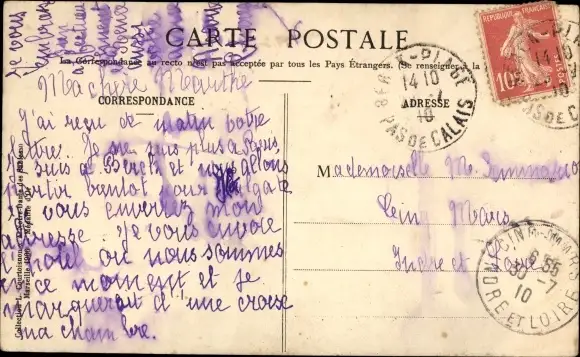 CARTE POSTALE
La Correspondance au recto n'est pas acceptée par tous les Pays Étrangers. (Se renseigner à la
CORRESPONDANCE
ADRESSE
Ma chère Marthe
J'ai reçu ce matin votre
lettre. Je ne suis plus à Paris
je suis à Berck et nous allons
partir bientôt pour
je vous enverrez mon
adresse. Je vous envoie
l'hotel ou nous sommes
en ce moment et je
marquerait d'une croise
ma chambre.
Je vous
embrasse
Mademoiselle M.
Cinq Mars
Indre et Loire
REPUBLIQUE FRANÇAISE
10
POSTES
BERCK-PLAGE
14 10
10
PAS DE CALAIS
CINQ-MARS
30 -7
10
INDRE ET LOIRE